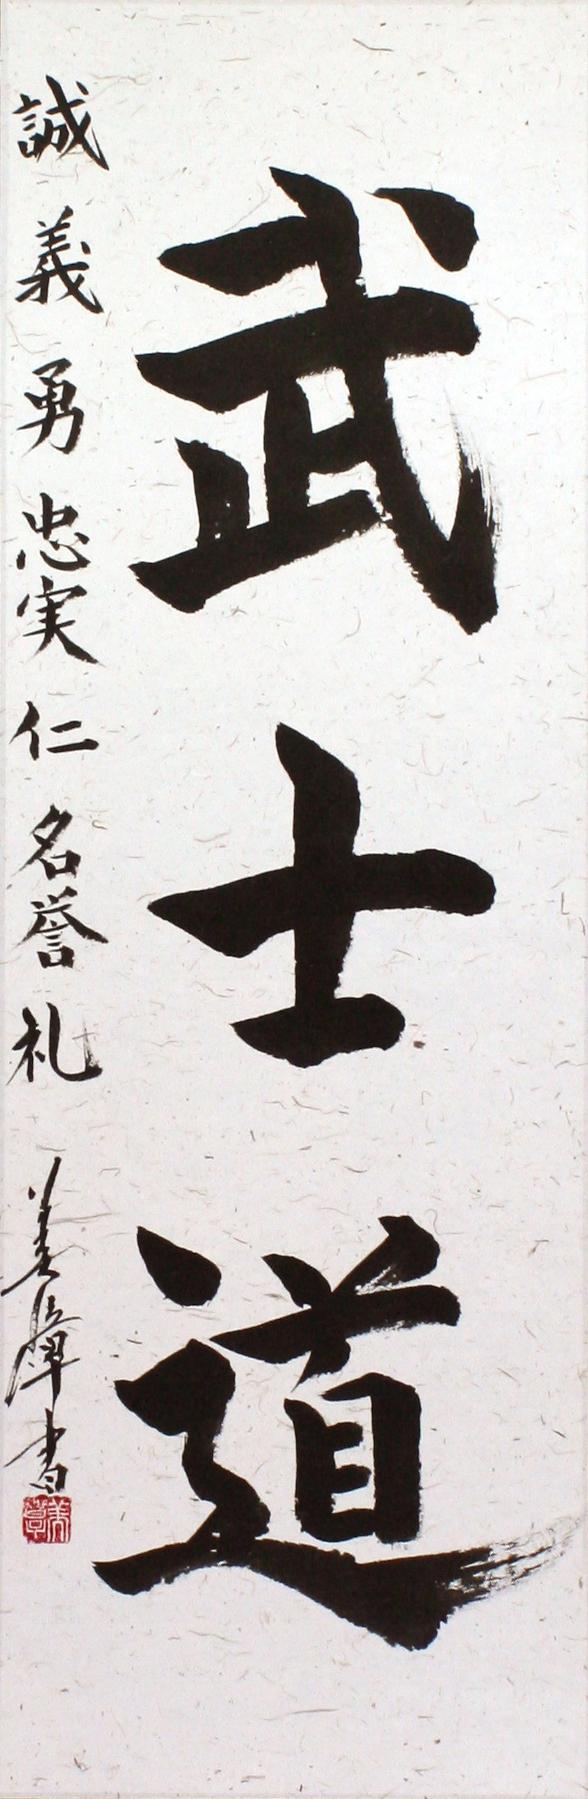 武士道
誠 義 勇 忠実 仁 名誉 礼 美 書